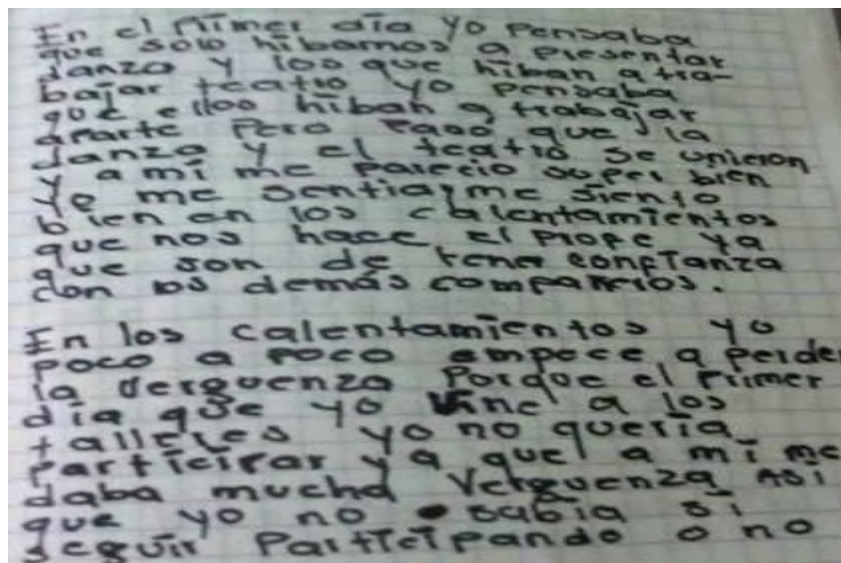 En el primer día yo pensaba
que solo hibamos a presentar
danza y los que hiban a tra-
bajar teatro yo pensaba
que ellos hiban a trabajar
aparte pero paso que la
danza y el teatro se unieron
y a mí me parecio super bien
Yo me sentia y me siento
bien en los calentamientos
que nos hace el profe ya
que son de tener confianza
con los demás compañeros.
En los calentamientos yo
poco a poco empece a perder
la verguenza porque el primer
día que yo vine a los
talleres yo no quería
participar ya que a mí me
daba mucha verguenza Asi
que yo no sabía si
seguir participando o no